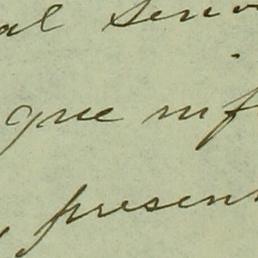 al Seno
que inf
presen